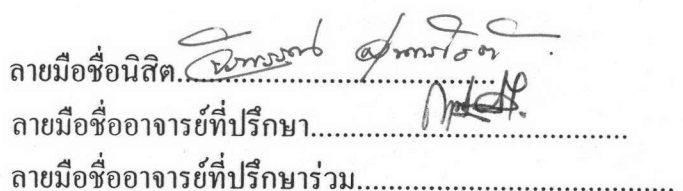 ลายมือชื่อนิสิต................................................
ลายมือชื่ออาจารย์ที่ปรึกษา................................................
ลายมือชื่ออาจารย์ที่ปรึกษาร่วม................................................